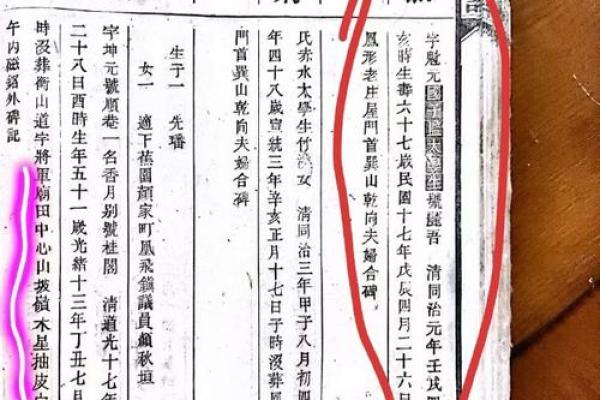 字慰元國子監太學生號吾 清同治元年壬戌四
亥時生壽六十七歲民國十七年戊辰四月二十六日
鳳形老庄屋門首巽山乾向夫婦合碑
氏赤水太學生竹溪女 清同治三年甲子八月初
年四十八歲宣統三年辛亥正月十七日子時沒葬鳳
門首巽山乾向夫婦合碑
生子一 先璠
女一 適下蕉園顏家町鳳飛鎮議員顏秋垣
字坤元號順巷一名香月別號桂閣 清道光十七年
二十八日酉時生年五十一歲光緒十三年丁丑七月
時沒葬衡山道字將軍廟田中心山坡嶺木星抽皮
午內磁銘外碑記